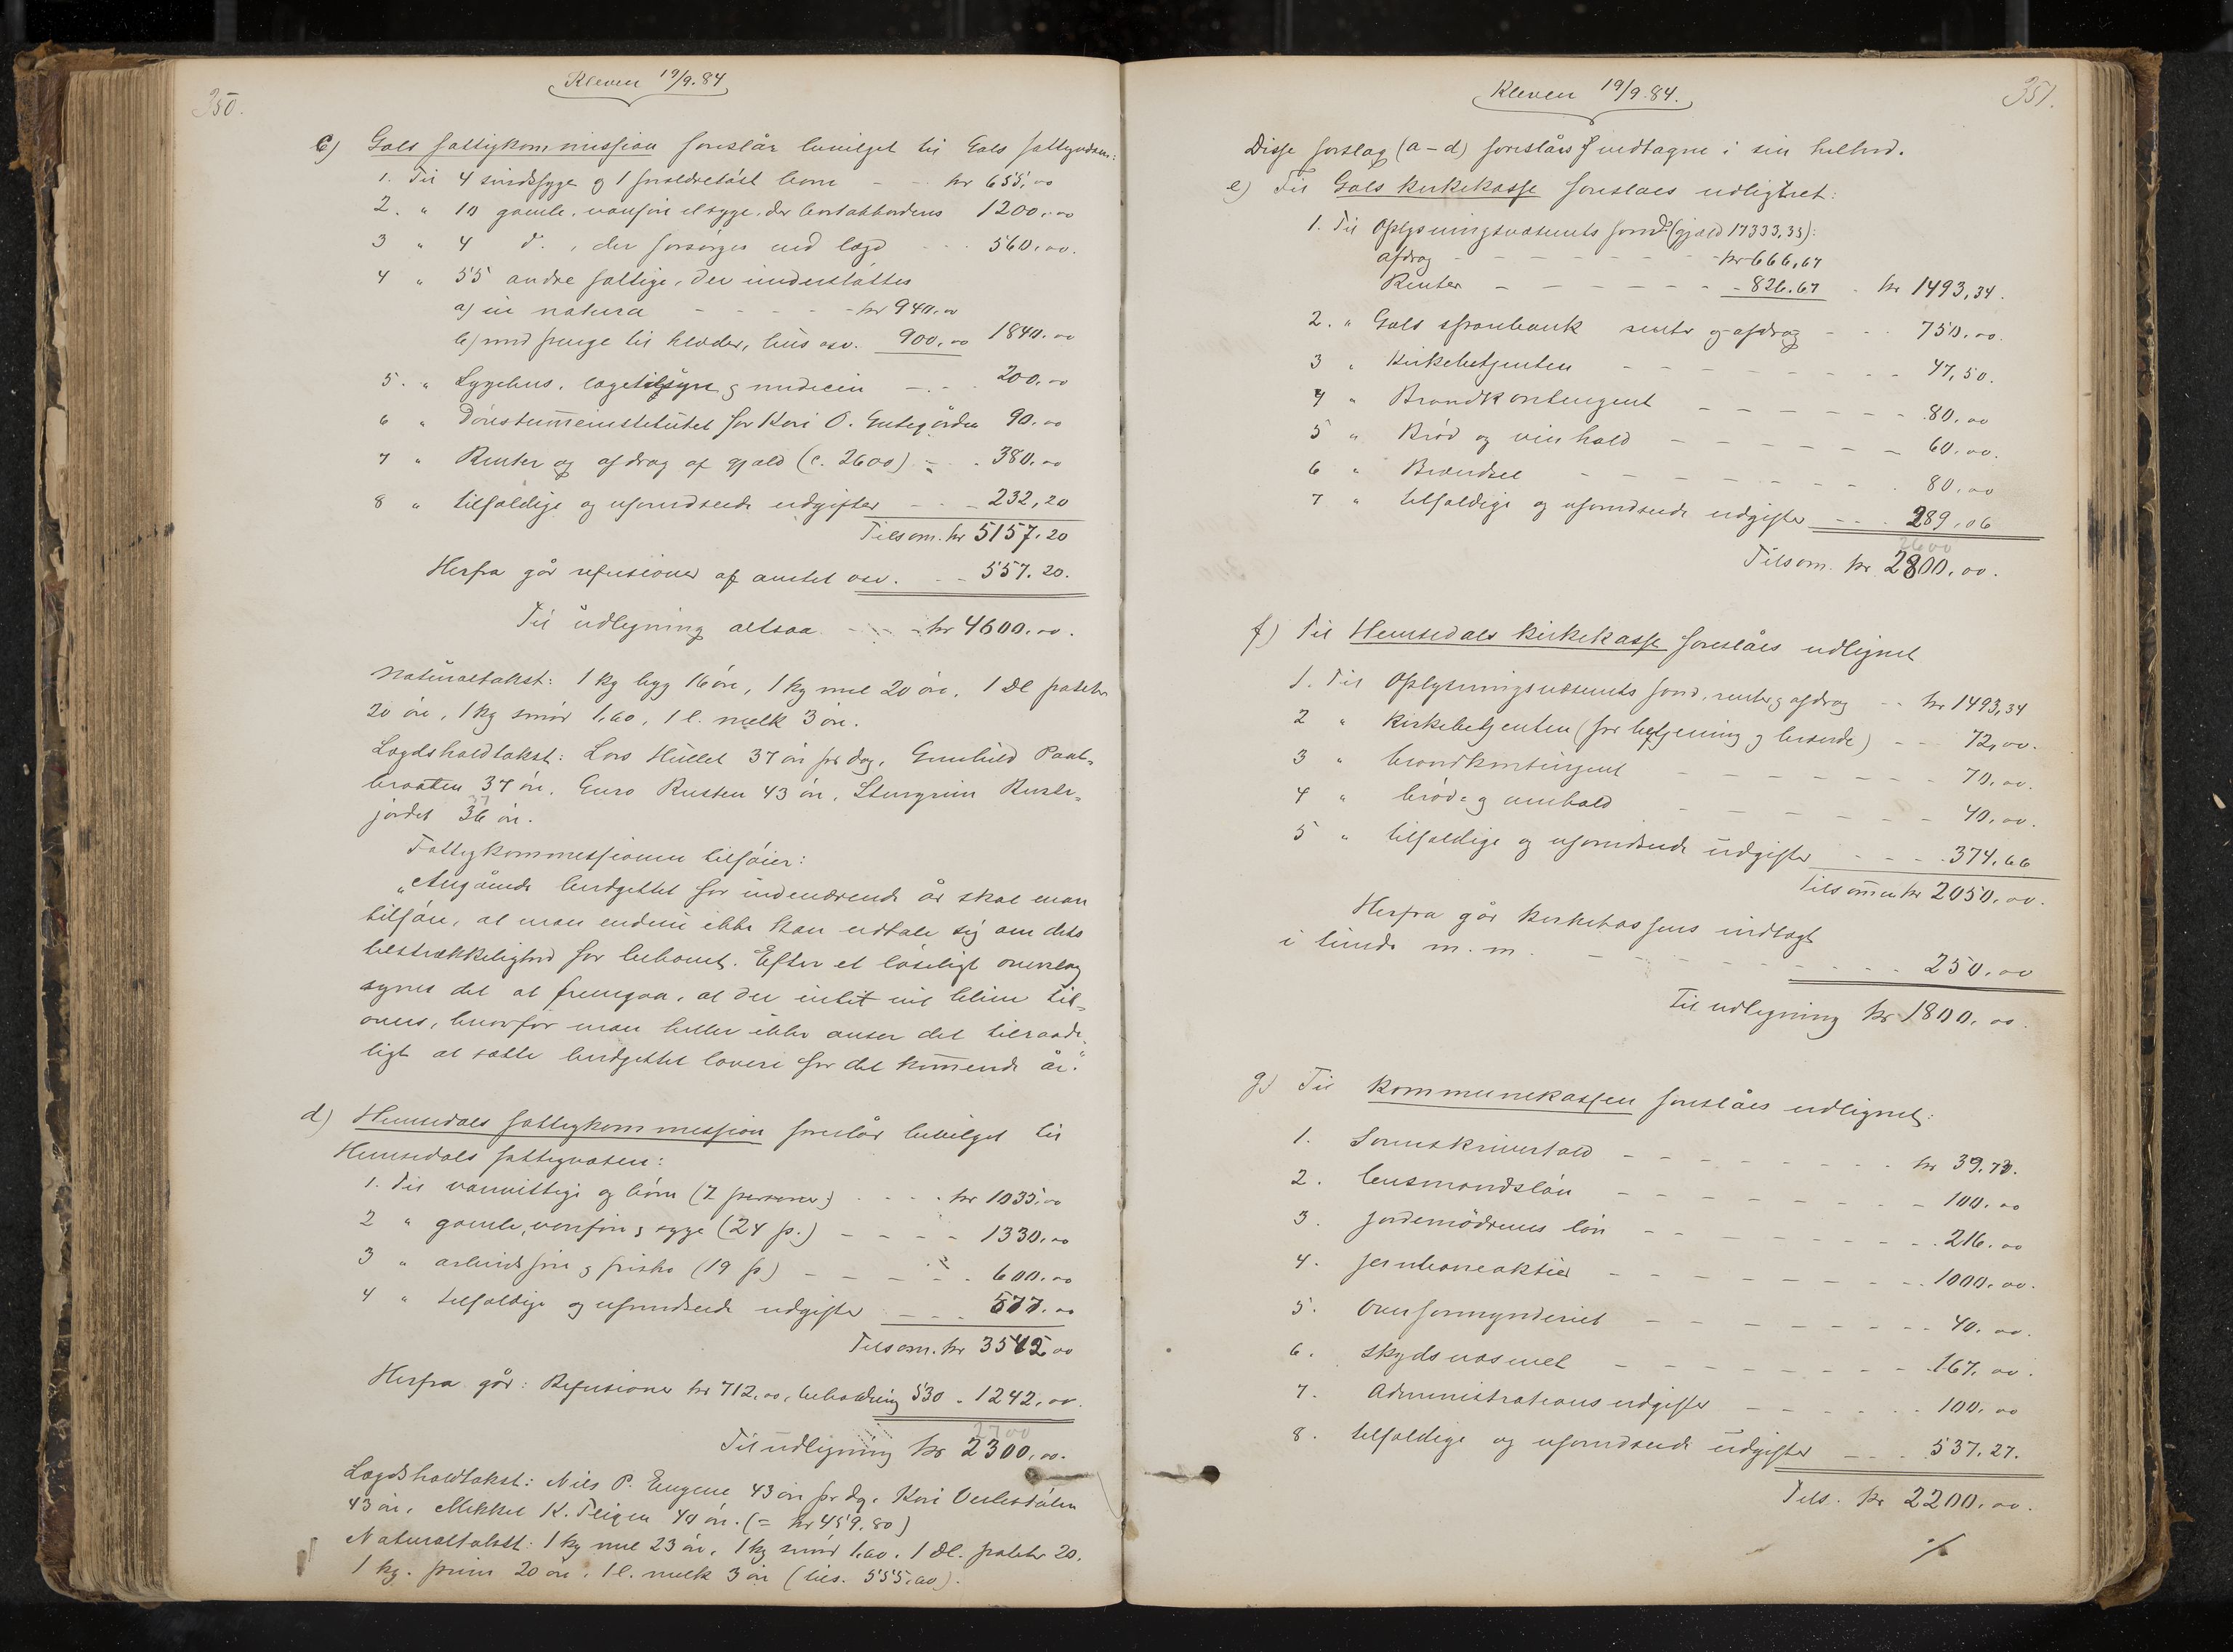 350.
Kleven 19/9.84
c) Gols fattigkommission foreslår bevilget til Gols fattigvæsen:
1. Til 4 sindssyge og 1 forældreløst barn - - kr 655,00
2. " 10 gamle, vanføre el syge, der bortakkorderes 1200,00
3 " 4 do., der forsørges ved lægd - - - 560,00.
4 " 55 andre fattige, der understøttes
a) in natura - - - - - kr 940,00
b) med penge til klæder, hus osv. 900,00 1840,00
5. " Sygehus, lægetilsyn og medicin - - - 200,00
6 " Døvstumeinstitutet for Kari O. Golegården 90,00
7 " Renter og afdrag af gjæld (c. 2600) - - 380,00
8 " tilfældige og uforudseede udgifter - - - 232,20
Tilsom. kr 5157,20
Herfra går refusioner af amtet osv. - - 557.20.
Til udligning altsaa - - - kr 4600,00.
Naturaltakst: 1 kg byg 16 øre, 1 kg mel 20 øre, 1 Dl poteter
20 øre, 1 kg smør 1,60, 1 l. melk 3 øre.
Lægdsholdtakst: Lars Hullet 37 øre pr dag, Gunhild Paal-
braaten 37 øre, Guro Rusten 43 øre, Stengrim
jordet 36 øre.
Fattigkommissionen tilføier:
"Angående budgettet for indeværende år skal man
tilføie, at man endnu ikke kan udtale sig om dets
tilstrækkelighed for behovet. Efter et løseligt overslag
synes det at fremgaa, at der intet vil blive til-
overs, hvorfor man heller ikke anser det tilraade-
ligt at sætte budgettet lavere for det komende år."
d) Hemsedals fattigkommission foreslår bevilget til
Hemsedals fattigvæsen:
1. Til vanvittige og børn (7 personer) - - - - kr 1035,00
2 " gamle, vanføre & syge (24 p.) - - - - 1330,00
3 " arbeidsføre & friske (19 p) - - - - - 600,00
4 " tilfældige og uforudseede udgifter - - - 577,00
Tilsom. kr 3542,00
Herfra går: Refusioner kr 712,00, beholdning 530 - 1242,00.
2700
Til udligning kr 2300,00.
Lægdsholdtakst: Nils P. Eugene 43 øre pr dg, Kari
43 øre, Mikkel K. Fleigen 40 øre. (= kr 459.80)
Naturaltakst: 1 kg mel 23 øre, 1 kg smør 1,60, 1 Dl. poteter 20,
1 kg. prim 20 øre, 1 l. melk 3 øre (tils. 555,00).
351.
Kleven 19/9.84.
Disse forslag (a-d) foreslåes vedtagne i sin helhed.
e) Til Gols kirkekasse foreslaes udlignet:
1. Til Oplysningsvæsenets fond (gjæld 17333,33):
afdrag - - - - - - - kr 666,67
Renter - - - - - - - 826.67 - kr 1493,34.
2. " Gols sparebank rente og afdrag - - - 750,00.
3 " Kirkebetjenten - - - - - - - - 47,50.
4 " Brandkontingent - - - - - - - 80,00
5 " Brød og vinhold - - - - - - 60,00.
6 " Brændsel - - - - - - - - 80,00
7 " tilfældige og uforudseede udgifter - - - 289,06
2600
Tilsom. kr 2800,00.
f) Til Hemsedals kirkekasse foreslåes udlignet
1. Til Oplysningsvæsenets fond, renter & afdrag - - kr 1493,34
2 " Kirkebetjenten (for betjening & brænde) - - 72,00.
3 " brandkontingent - - - - - - - 70,00.
4 " brød- & vinhold - - - - - - - 40,00.
5 " tilfældige og uforudseede udgifter - - - - 374,66
Tilsomen kr 2050,00.
Herfra går kirkekassens indtægt
i tiende m. m. - - - - - - - - 250,00
Til udligning kr 1800,00.
g) Til kommunekassen foreslåes udlignet:
1. Sorenskrivertold - - - - - - - - kr 39.73.
2. lensmandsløn - - - - - - - - 100,00
3. jordemødrenes løn - - - - - - - - 216,00
4. jernbaneaktier - - - - - - - - 1000,00.
5. Overformynderiet - - - - - - - - 40,00.
6. skydsvæsenet - - - - - - - - 167,00.
7. Administrationsudgifter - - - - - - 100,00
8. tilfældige og uforudseede udgifter - - - 537.27.
Tils. kr 2200,00.